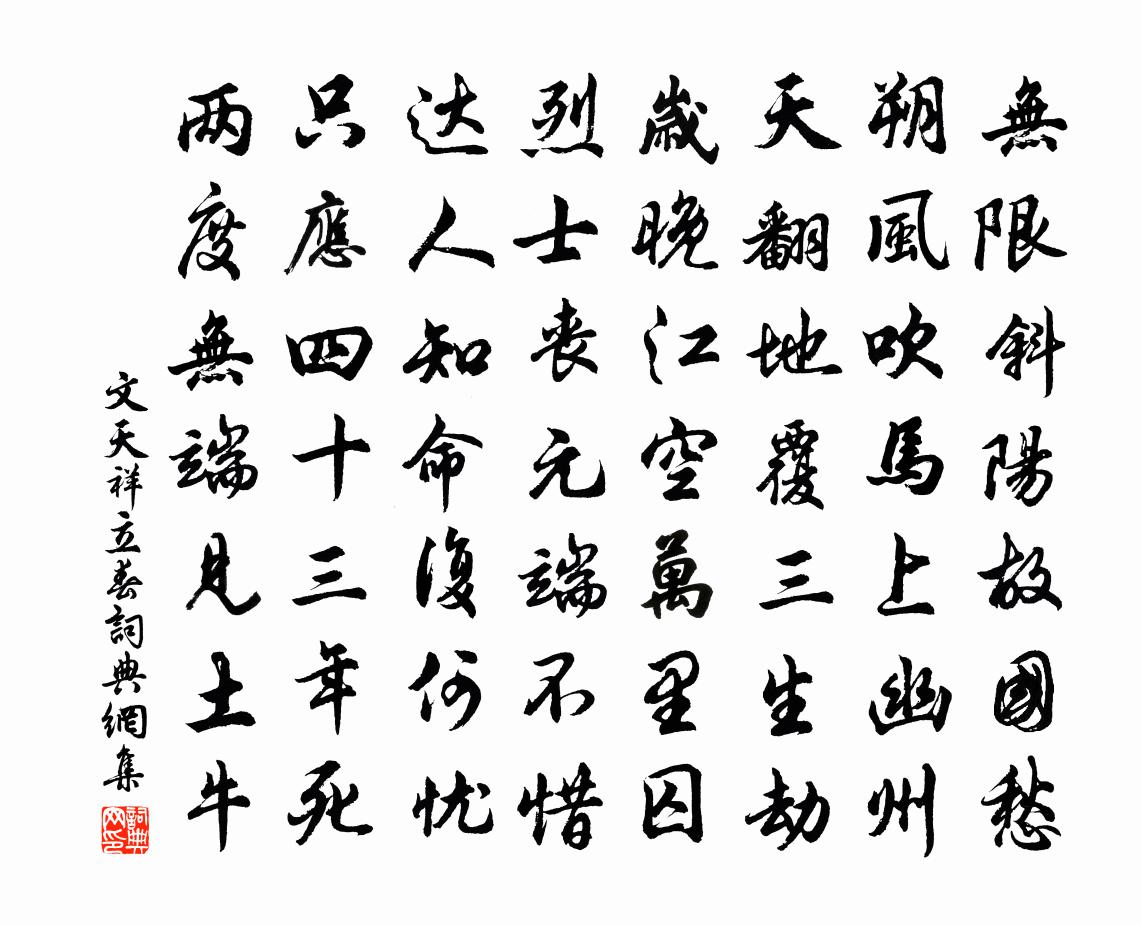 無限斜陽故國愁
朔風吹馬上幽州
天翻地覆三生劫
歲晚江空萬里囚
烈士喪元端不惜
达人知命復何忧
只應四十三年死
两度無端見土牛
文天祥立春詞典網集
詞典网印